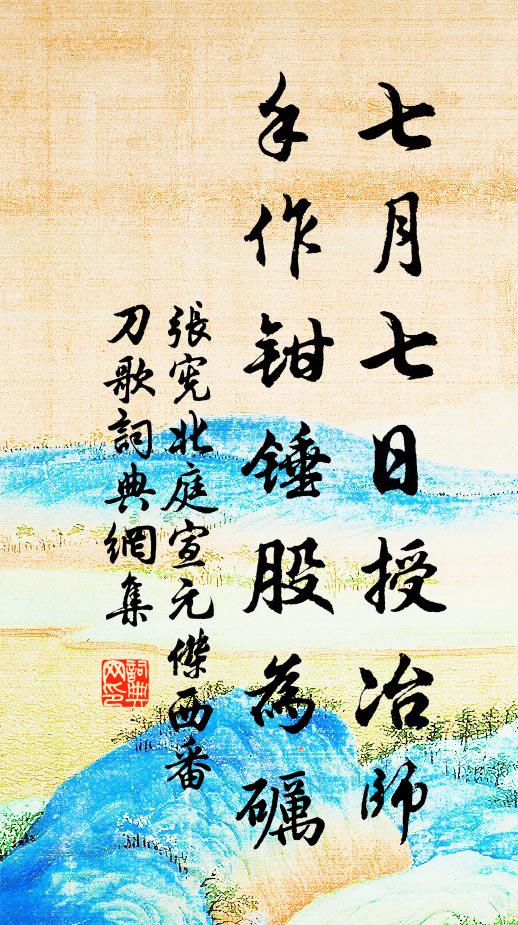 七月七日授冶師
手作鉗錘股為礪
張憲北庭宣元傑西番
刀歌詞典網集
詞典
网印